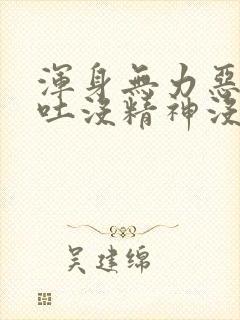 渾身無力惡
吐沒精神沒
吴建绵